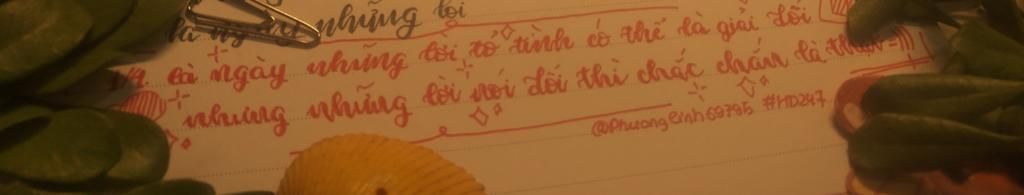 là ngày những lời
1/4 là ngày những lời tỏ tình có thể là giải dối
nhưng những lời nói dối thì chắc chắn là thật =)))
@Phuonglinh69795 #HD247